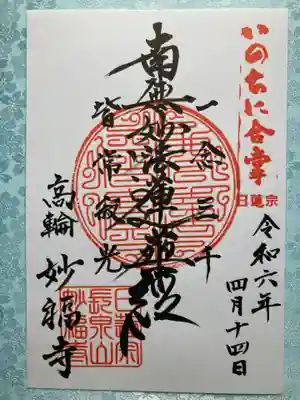 いのちに合掌
日蓮宗
令和六年
四月十四日
一念三千
南無妙法蓮華経
皆帰寂光
高輪
妙福寺